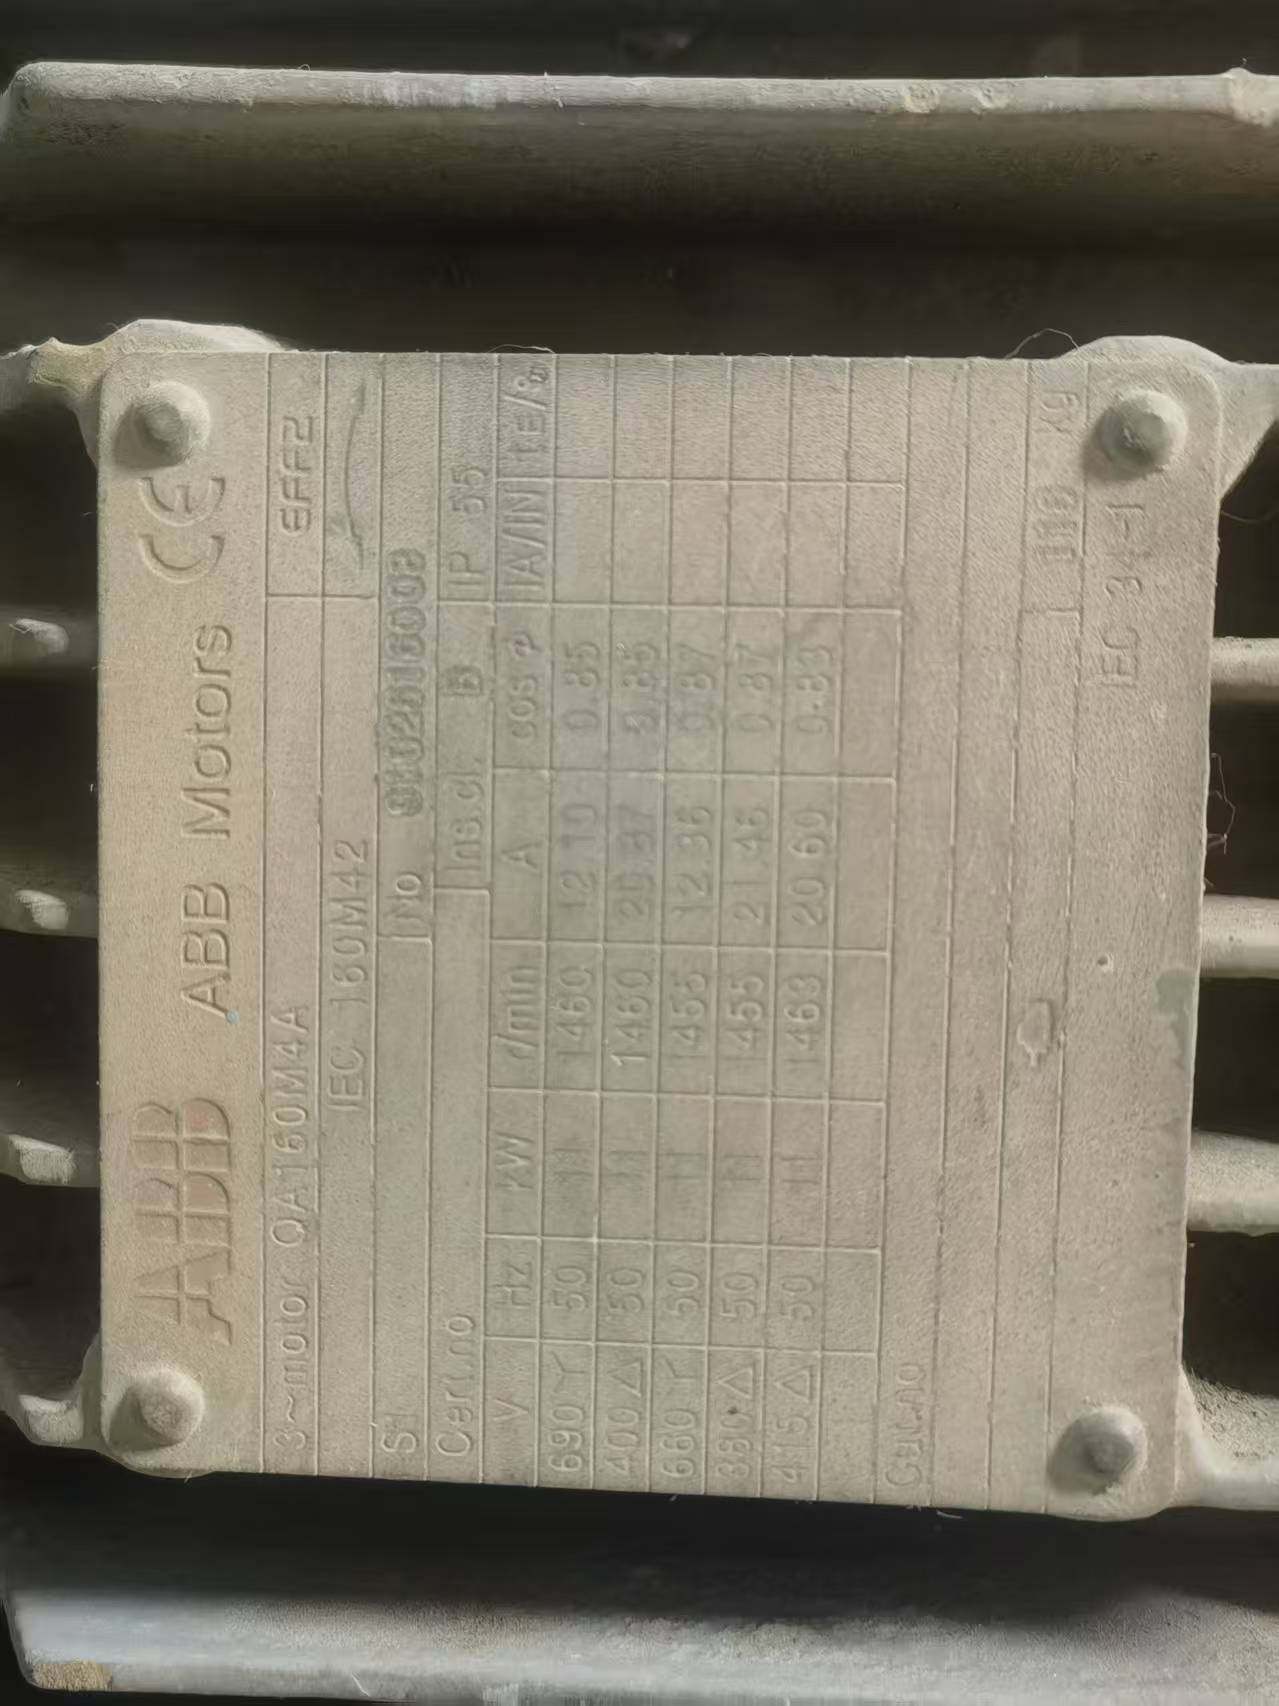 ABB ABB Motors CE
3~motor QA160M4A EFF2
IEC 160M42
S1 No
Cert.no Ins.cl. IP 55
V Hz kW r/min A cos φ IA/IN tE/s
690Y 50 11 1460 12.10 0.85
400Δ 50 11 1460 20.97 0.85
660Y 50 11 1455 12.36 0.87
380Δ 50 11 1455 21.46 0.87
415Δ 50 11 1463 20.60 0.83
Cat.no
kg
IEC 34-1